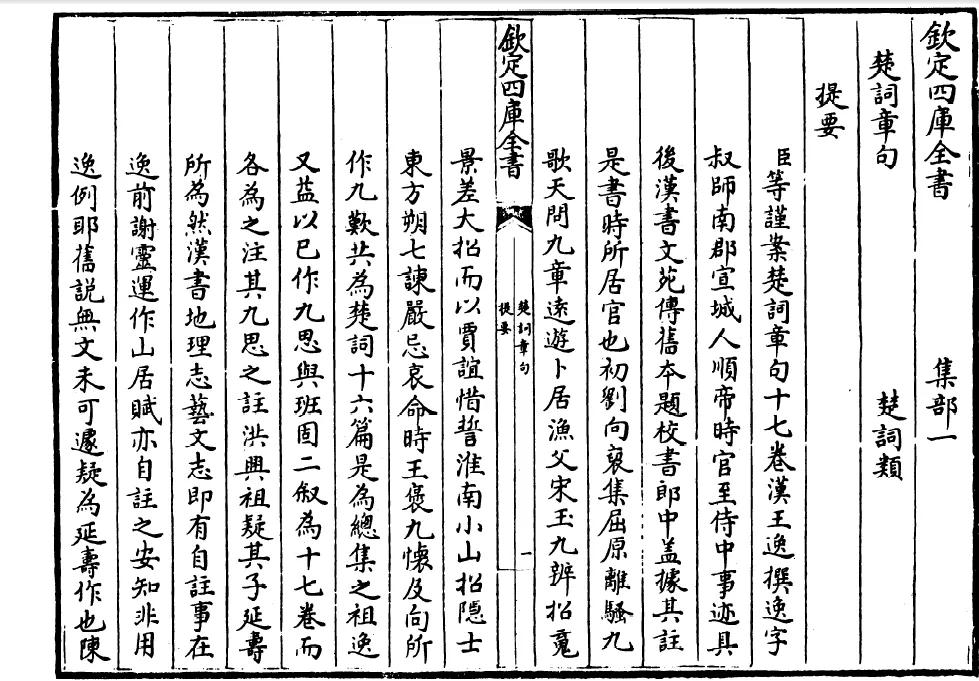 欽定四庫全書 集部一
楚詞章句 楚詞類
提要
臣等謹案楚詞章句十七卷漢王逸撰逸字
叔師南郡宣城人順帝時官至侍中事迹具
後漢書文苑傳舊本題校書郎中盖據其註
是書時所居官也初劉向裒集屈原離騷九
歌天問九章逺遊卜居漁父宋玉九辨招䰟
欽定四庫全書
楚詞章句
提要
一
景差大招而以賈誼惜誓淮南小山招隠士
東方朔七諫嚴忌哀命時王褒九懐及向所
作九歎共為楚詞十六篇是為總集之祖逸
又益以己作九思與班固二敘為十七卷而
各為之注其九思之註洪興祖疑其子延壽
所為然漢書地理志藝文志即有自註事在
逸前謝靈運作山居賦亦自註之安知非用
逸例耶舊説無文未可遽疑為延壽作也陳